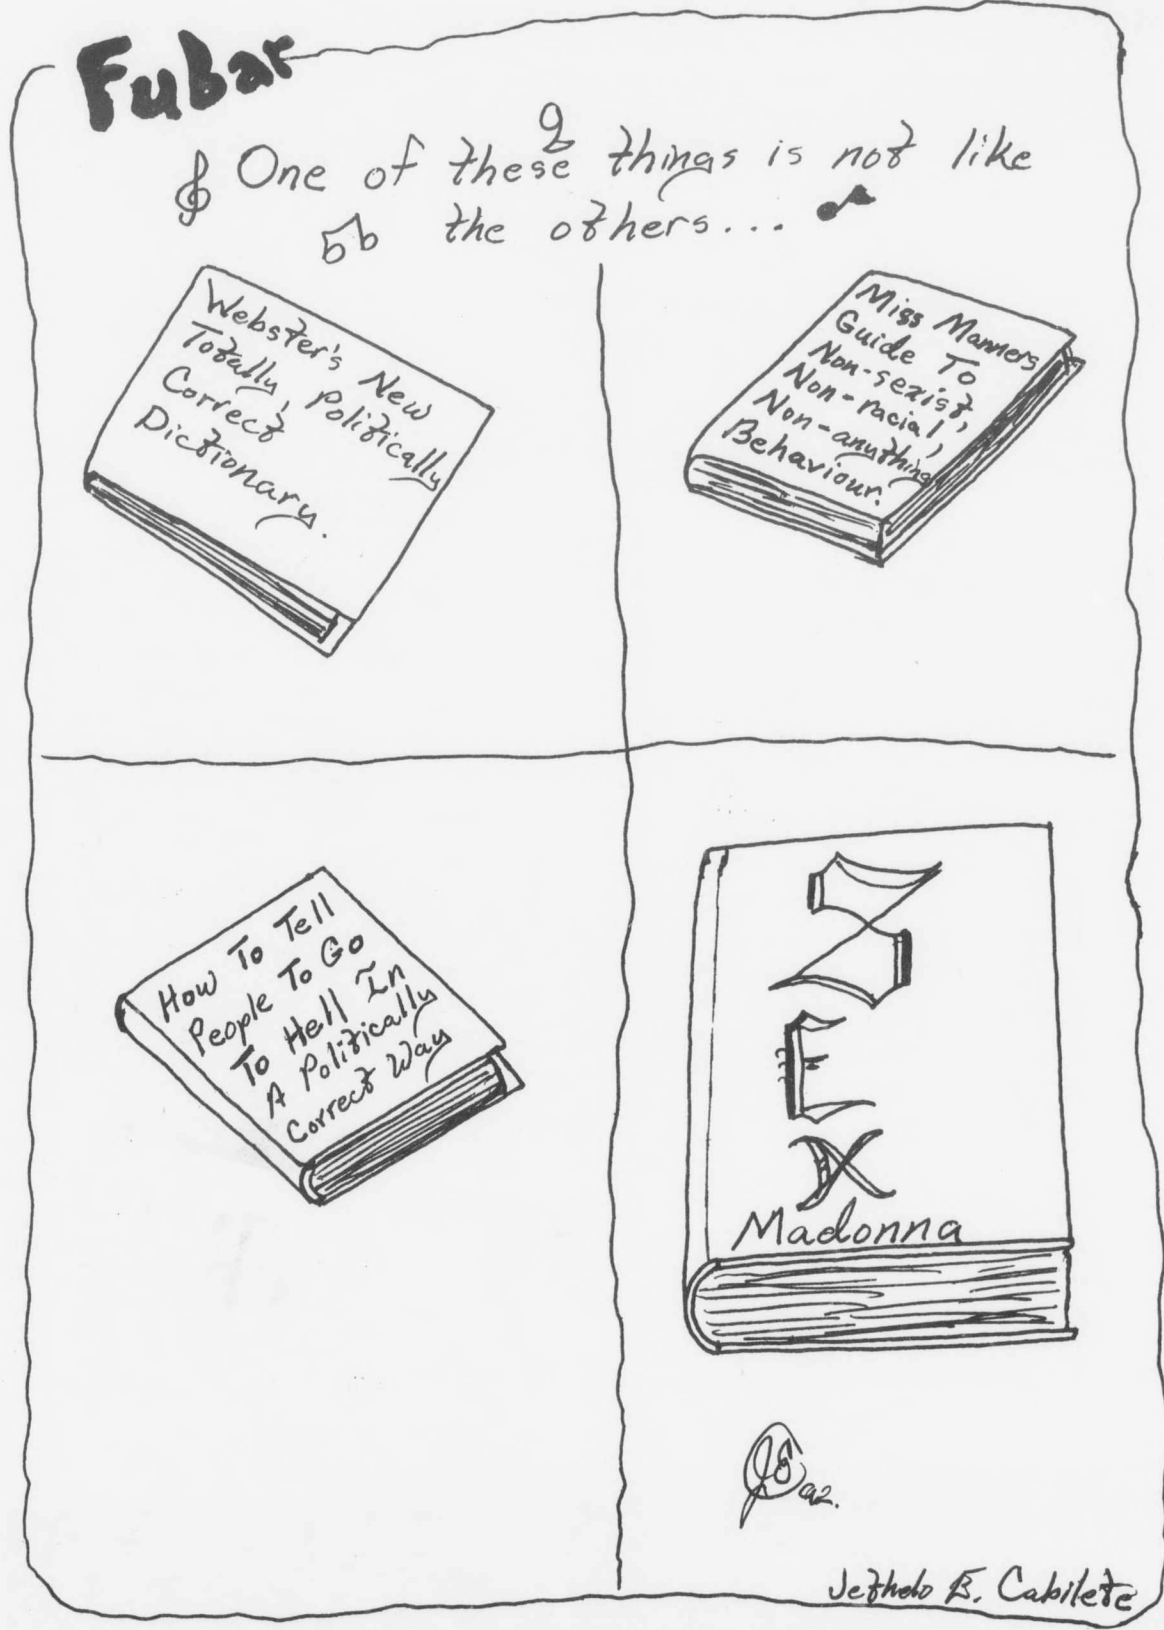 Fubar
One of these things is not like
the others...
Webster's New
Totally, Politically
Correct
Dictionary.
Miss Manners
Guide To
Non-sexist,
Non-racial,
Non-anything
Behaviour.
How To Tell
People To Go
To Hell In
A Politically
Correct Way
SEX
Madonna
92.
Jethelo E. Cabilete